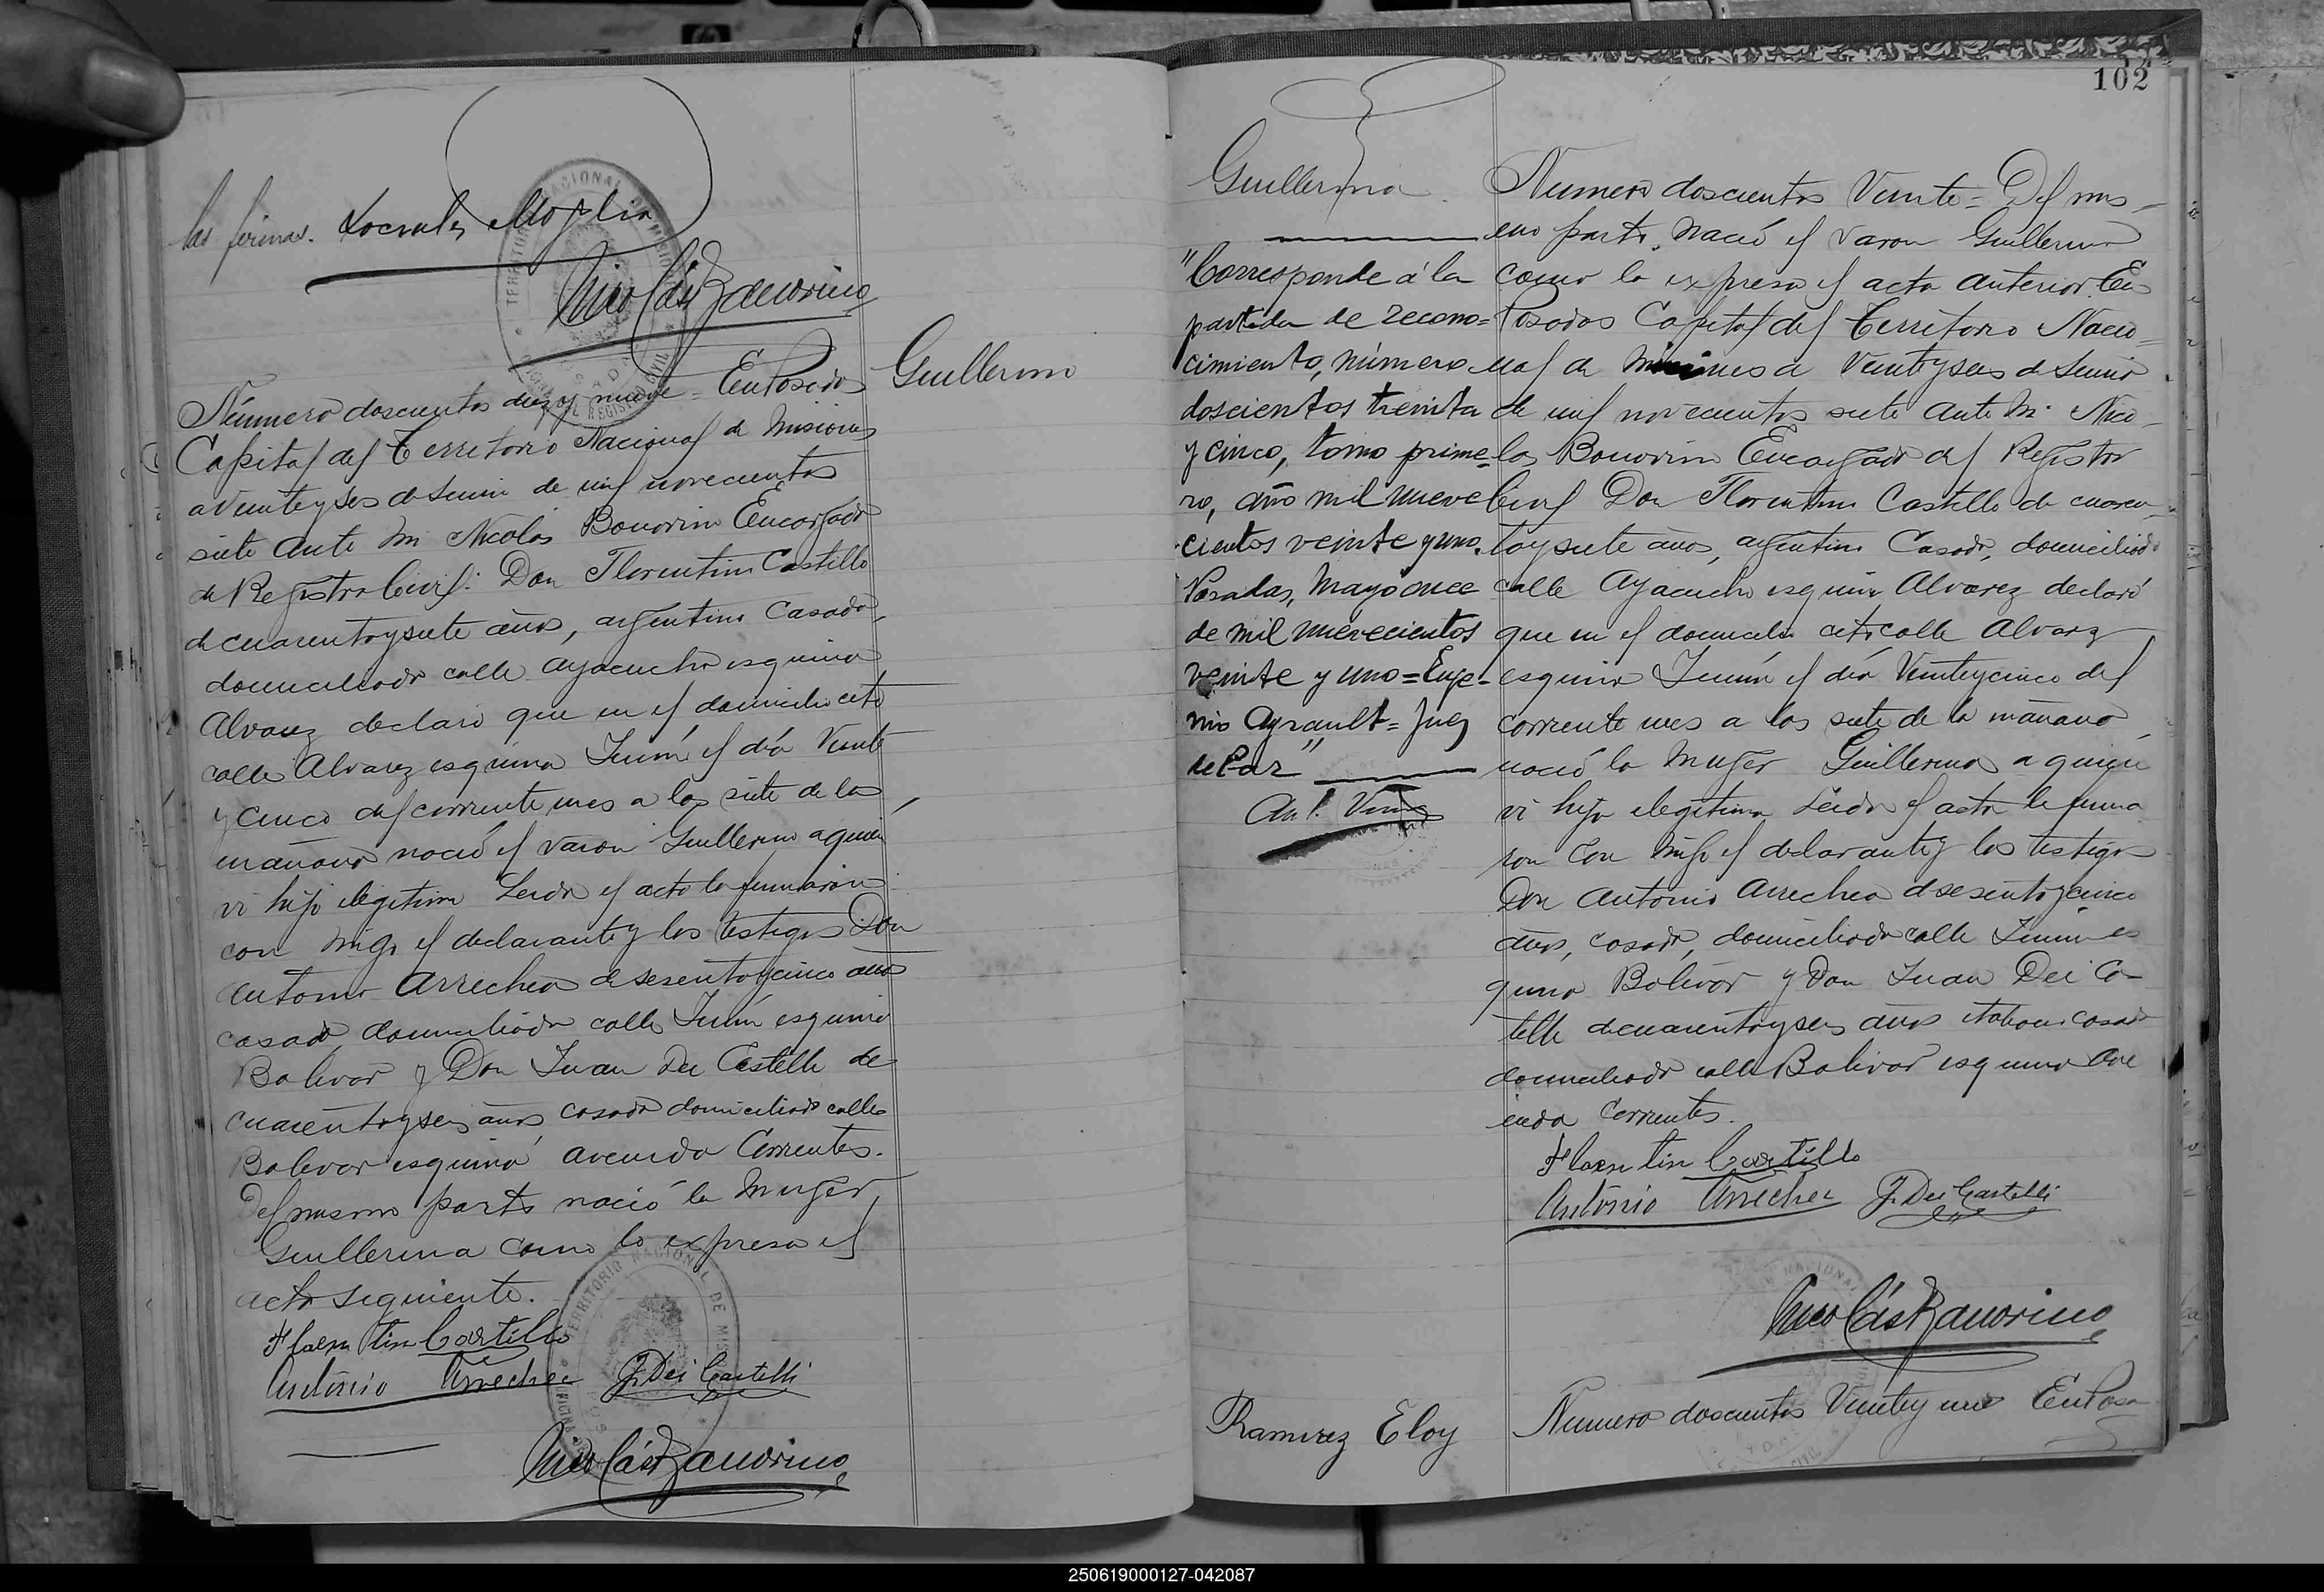 las firmas. Socrates Moglia
Nicolás Bonorino
Guillermo
Número doscientos diez y nueve = En Posadas
Capital del Territorio Nacional de Misiones
a veinteyseis de Junio de mil novecientos
siete ante mi Nicolás Bonorino Encargado
de Registro Civil: Don Florentino Castillo
de cuarentaysiete años, argentino Casado,
domiciliado calle Ayacucho esquina
Alvarez declaró que en el domicilio cito
calle Alvarez esquina Junín el día Veinte
y cinco del corriente mes a las siete de la
mañana nació el varon Guillermo a quien
vi hijo ilegitimo Leida el acta la firmaron
con migo el declarante y los testigos Don
Antonio Arrechea de sesentaycinco años
casado domiciliado calle Junín esquina
Bolivar y Don Juan Dei Castelli de
cuarentayseis años casado domiciliado calle
Bolivar esquina avenida Corrientes.
Del mismo parto nació la muger
Guillerma como lo expresa el
acta siguiente.
Florentin Castillo
Antonio Arrechea J. Dei Castelli
Nicolás Bonorino
102
Guillerma
"Corresponde á la
partida de recono=
cimiento, número
doscientos treinta
y cinco, tomo prime=
ro, año mil nueve
cientos veinte y uno.
Posadas, Mayo once
de mil nuevecientos
veinte y uno = Euge-
nio Ayrault = Juez
de Paz"
Numero doscientos Veinte = Del mis-
mo parto nació el varon Guillermo
como lo expresa el acta anterior. En
Posadas Capital del Territorio Nacio=
nal de Misiones a Veinteyseis de Junio
de mil novecientos siete ante mi Nico-
las Bonorino Encargado del Registro
Civil Don Florentino Castillo de cuaren-
taysiete años, argentino Casado, domiciliado
calle Ayacucho esquina Alvarez declaró
que en el domicilio cito calle Alvarez
esquina Junín el día Veinteycinco del
corriente mes a las siete de la mañana
nació la muger Guillerma a quien
vi hija ilegitima Leida el acta la firma
ron con migo el declarante y los testigos
Don Antonio Arrechea de sesentaycinco
años, casado, domiciliado calle Junin es
quina Bolivar y Don Juan Dei Ca-
telli de cuarentayseis años italiano casado
domiciliado calle Bolivar esquina Ave
nida Corrientes.
Florentin Castillo
Antonio Arrechea J. Dei Castelli
Nicolás Bonorino
Ramirez Eloy
Numero doscientos Veinteyuno En Posa
250619000127-042087